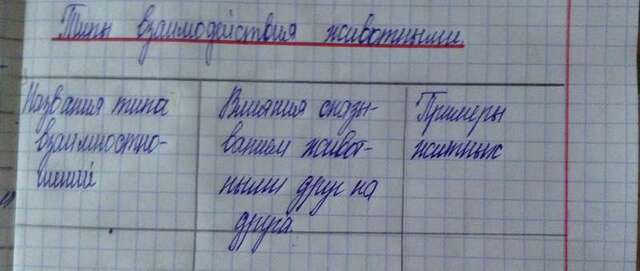 Типы взаимодействия животными.
Названия типа
взаимностно-
шений
Влияния сказы-
ванием живот-
ными друг на
друга.
Примеры
житных